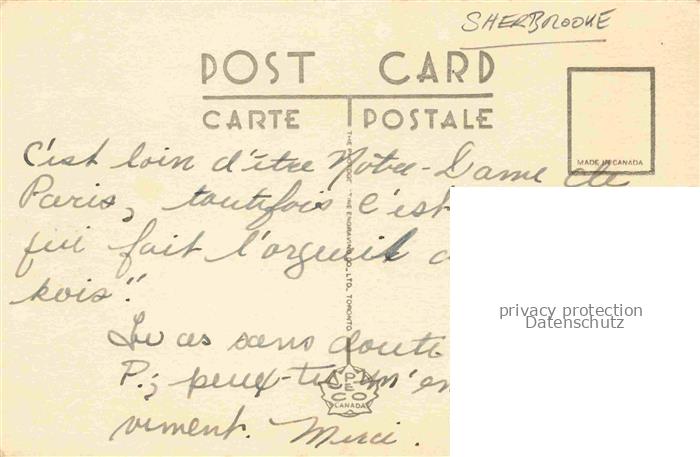 SHERBROOKE
POST CARD
CARTE POSTALE
MADE IN CANADA
C'est loin d'être Notre-Dame de
Paris, toutefois c'est
qui fait l'orgueil
kois".
Tu as sans doute
P.; peux-tu m'en
viment. Merci.
PECO
CANADA
privacy protection
Datenschutz